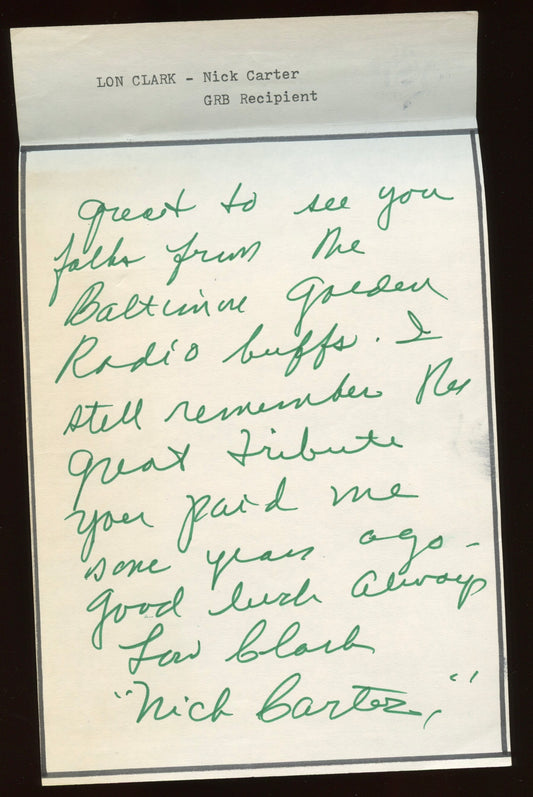 LON CLARK - Nick Carter
GRB Recipient
Great to see you
folks from the
Baltimore Golden
Radio buffs. I
still remember the
great tribute
you paid me
some years ago -
Good luck always
Lon Clark
"Nick Carter,"